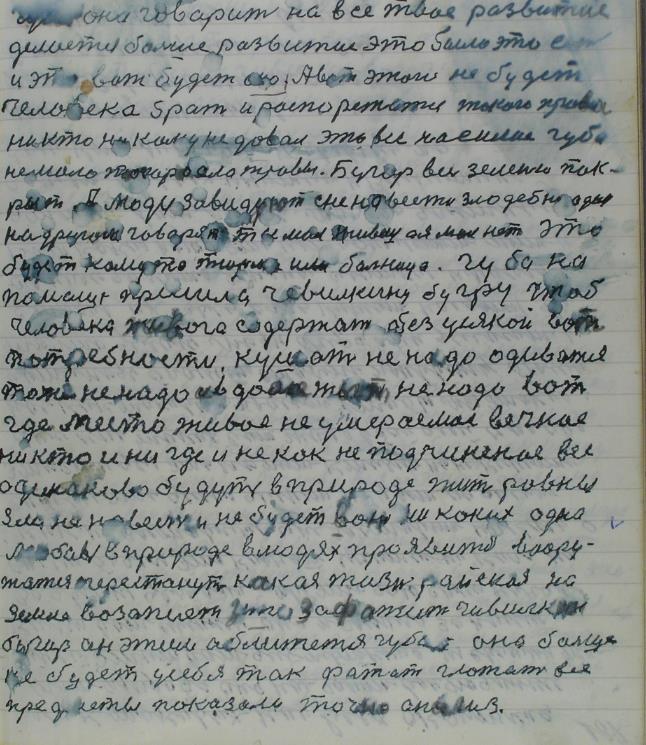 она говарит на все твое развитие
делается болие развитие это было это есть
и это вот будет оно. А вот этого не будет
человека брат и распоряжатся такого права
никто никому не довал это все насилие губа
немало пожирала травы. Бугор вен зелени пок-
рыт. В люди завидуют с ненавести злодебни один
на другога говарят ты мол живеш а я мол нет это
будет кому то тюрма или болница. Губа на
помащь пришла чевилкину бугру чтоб
человека живога содержат без усякой вот
потребности, кушат не надо одиватся
тоже не надо и в доме жыт не надо вот
где место живое не умераемае вечнае
никто и ни где и не как не подчиненае все
одинаково будут в природе жит ровны
зла не новести не будет воны ни коких одна
любовь в природе в людях проявится воору-
жатся перестанут какая жизн райская на
земле возапеят это заслужит чивилкин
бугор он этим аближется губа она болще
не будет у себя так фатат глотат все
предметы показали точно анализ.